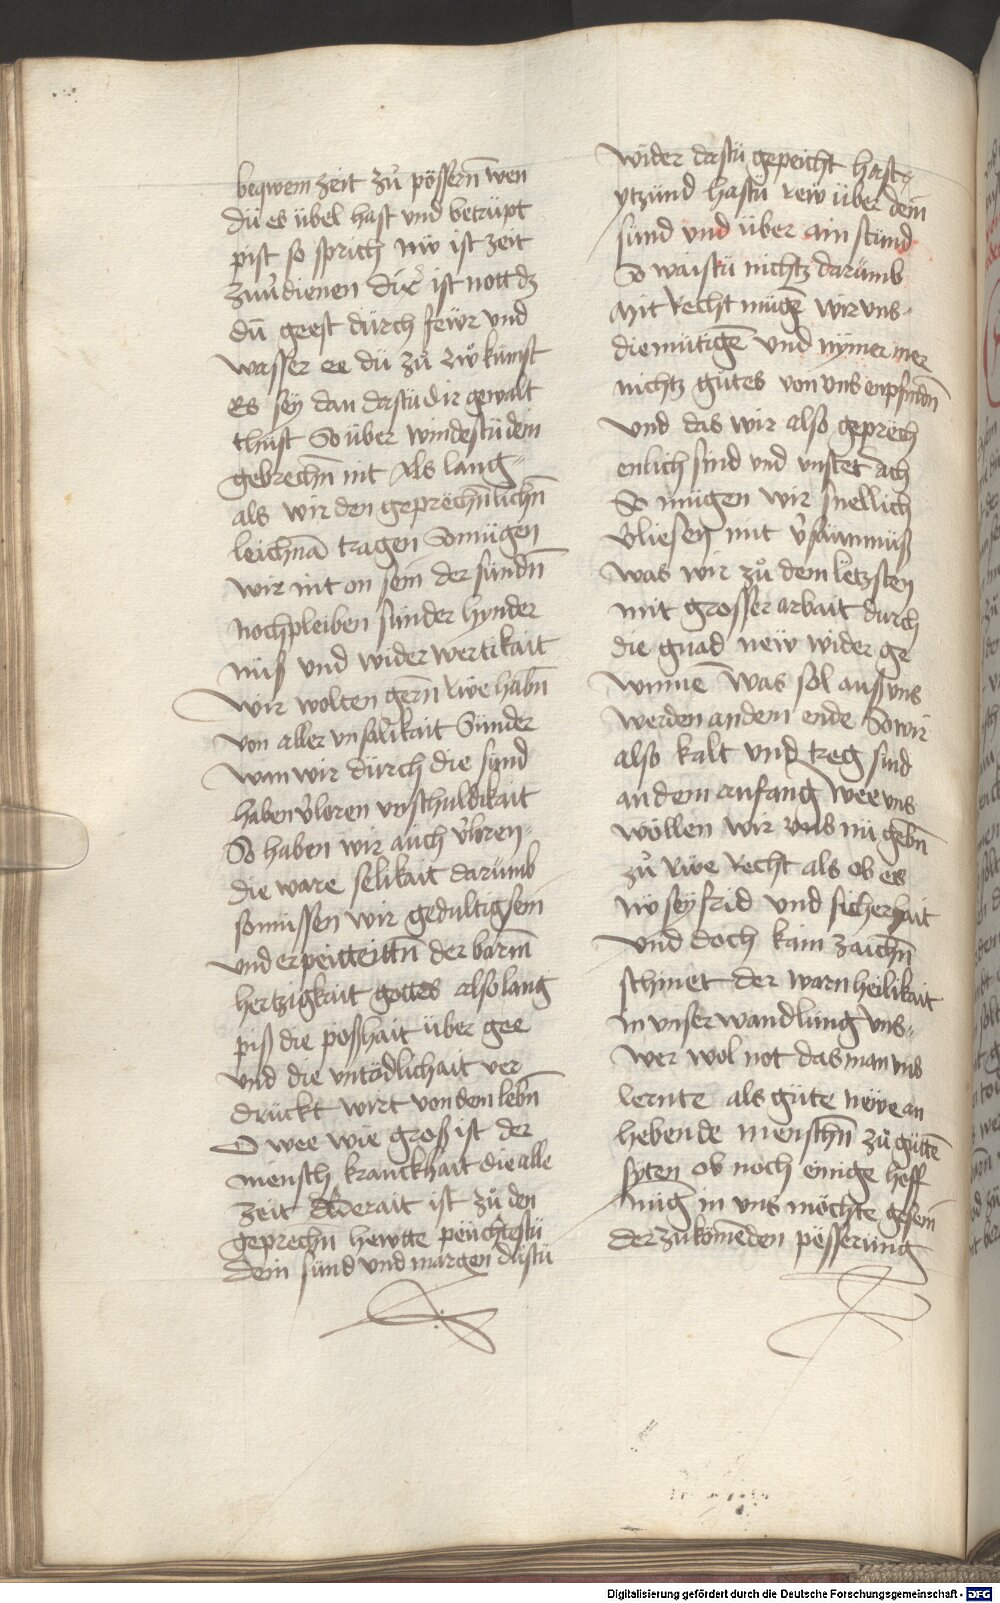 beqwem zeit zů pössern̄ wen
dü es übel hast vnd betrüpt
pist so sprich nw ist zeit
zuuͦdienen dir ist nott dz
dü geest dürch fewr vnd
wasser ee dü zů rẘ kümst
es seÿ dan dastü dir gewalt
thüst So über windestü dein
gebrechn̄ nit Als lang
als wir den geprëchn̄lichn̄
leichnā tragen So mügen
wir nit on sein der sündn̄
noch pleiben sünder hynder
nüß vnd wider wertikait
wir wolten gern̄ rwe habn̄
von aller vnsälikait Sünder
wan wir dürch die sünd
haben v̉loren vnschuldikait
So haben wir auch v̉loren
die ware selikait darümb
so müssen wir gedultig sein
vnd erpeitten der barm̄
hertzigkait gottes also lang
piß die poßhait über gee
vnd die vntödlichait ver
drückt wirt von dem lebn̄
O wee wie groß ist der
mensch kranckhait die alle
zeit berait ist zů den
geprechn̄ hewtte peüchtestü
dein sünd vnd margen düstü
wider dastü gepeicht hast
ytzünd hastü rew über dein
sünd vnd über ain stünd
So waistü nichtz darümb
Mit Recht mügē wir vns
diemütigē vnd nÿmer mer
nichtz gütes von vns enpfindn̄
vnd das wir also geprëch
enlich sind vnd vnstet ach
So mügen wir snellich
v̉liesen mit v̉säumnüß
was wir zů dem letzsten
mit grosser arbait durch
die gnad new wider ge
winnē Was sol auß vns
werden an dem ende So wir
also kalt vnd treg sind
an dem anfang wee vns
wöllen wir vns nü gebn̄
zů rwe Recht als ob es
nw seÿ frid vnd sicherhait
vnd doch kain zaichn̄
schinet der warn heilikait
in vnser wandlüng vns
wer wol not das man vns
lernte als güte newe an
hebende menschn̄ zů gůttē
syten ob noch einige hoff
nüg in vns möchte gesein
der zükömēden pësserüng
Digitalisierung gefördert durch die Deutsche Forschungsgemeinschaft - DFG